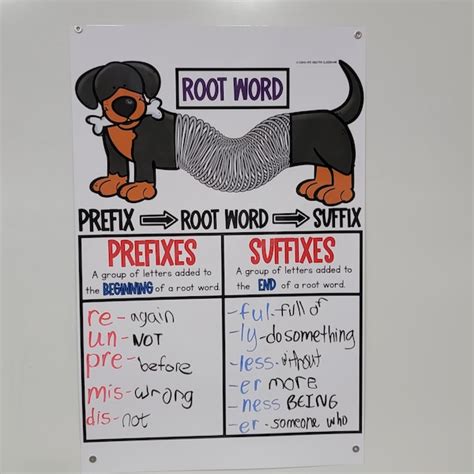 ROOT WORD
PREFIX ROOT WORD SUFFIX
PREFIXES
A group of letters added to
the BEGINNING of a root word.
re- again
un- NOT
pre- before
mis- wrong
dis- not
SUFFIXES
A group of letters added to
the END of a root word.
-ful- full of
-ly- do something
-less- without
-er more
-ness BEING
-er- someone who